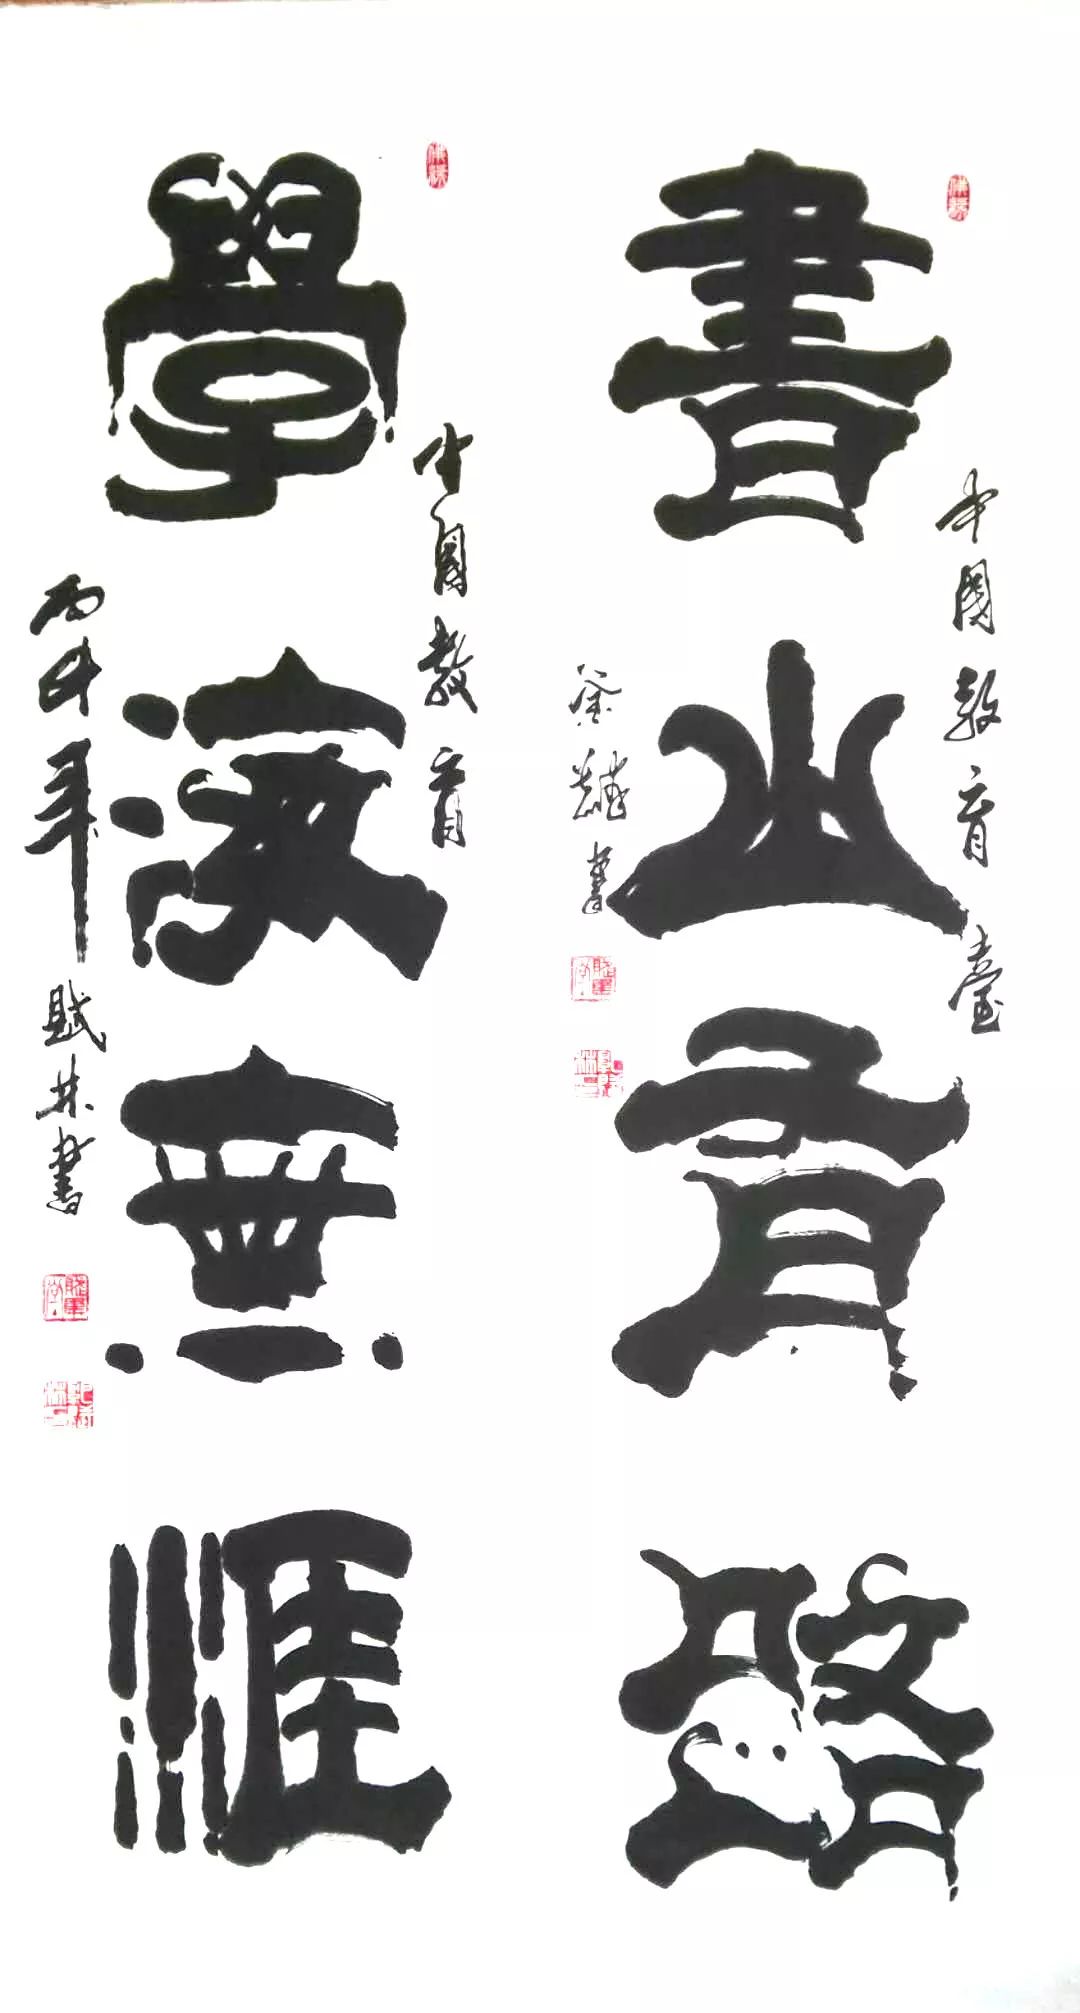 書山有路
學海無涯
中國教育臺
書
中國教育
年賦林書